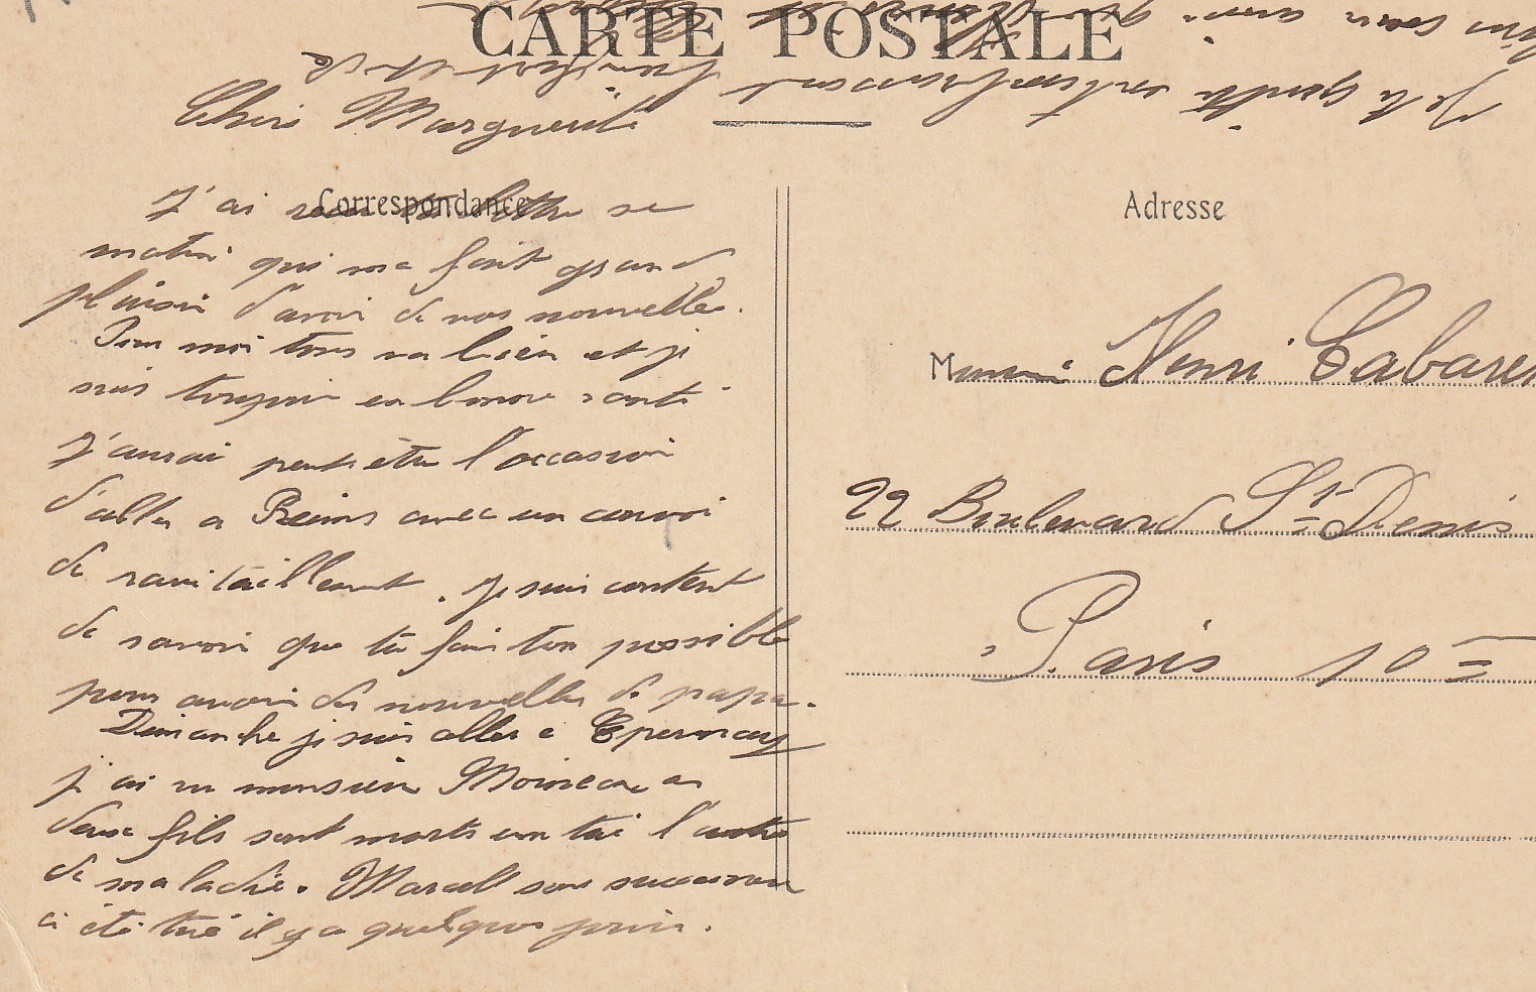 CARTE POSTALE
Chère Marguerite
Correspondance
J'ai recu ta lettre se
matin qui ma fait grand
plaisir d'avoir de vos nouvelles.
Pour moi tous va bien et je
suis toujour en bonne santé
J'aurai peut être l'occasion
d'aller a Reims avec un convoi
de ravitaillement. je suis content
de savoir que tu fais ton possible
pour avoir des nouvelles de papa.
Dimanche je suis aller a Epernay
j'ai vu monsieur Moineau a
deux fils sont morts un tué l'autre
de maladie. Marcel son successeur
a été tué il y a quelques jours.
Je te quitte en t'embrassant
Adresse
M Henri Cabaret
22 Boulevard St Denis
Paris 10